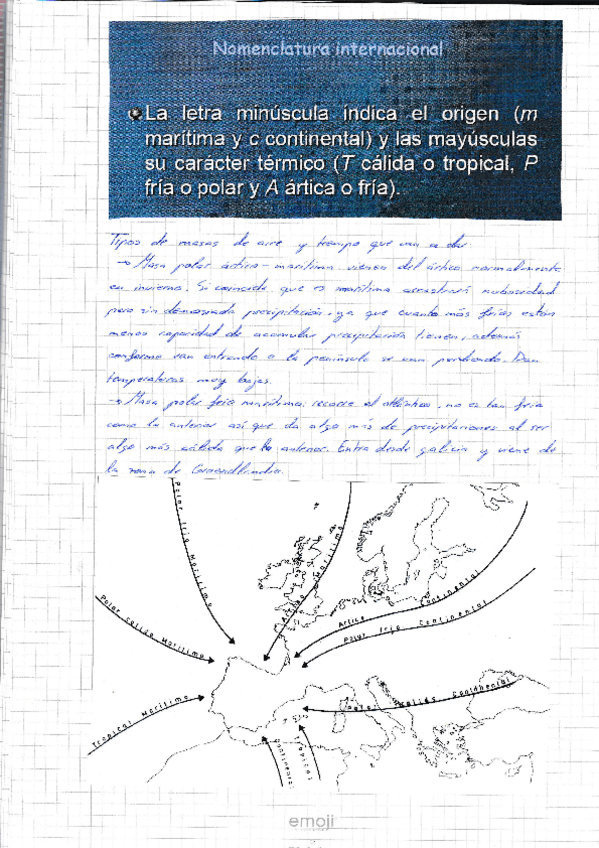 Nomenclatura internacional
La letra minúscula indica el origen (m
marítima y c continental) y las mayúsculas
su carácter térmico (T cálida o tropical, P
fría o polar y A ártica o fría).
Tipos de masas de aire y tiempo que van a dar:
→ Masa polar ártica-marítima: vienen del ártico normalmente
en invierno. Si coincide que es marítima arrastrará nubosidad
pero sin demasiada precipitación, ya que cuanto más frías están
menos capacidad de acumular precipitación tienen, además
conforme van entrando a la península se van perdiendo. Dan
temperaturas muy bajas.
→ Masa polar fría marítima: recorre el atlántico, no es tan fría
como la anterior así que da algo más de precipitaciones al ser
algo más cálida que la anterior. Entra desde galicia y viene de
la zona de
Polar Fría Marítimo
Artico Marítimo
Polar Cálido Marítimo
Artico Continental
Polar frío Continental
Polar Cálido Continental
Tropical Marítimo
Tropical
Continental
emoji